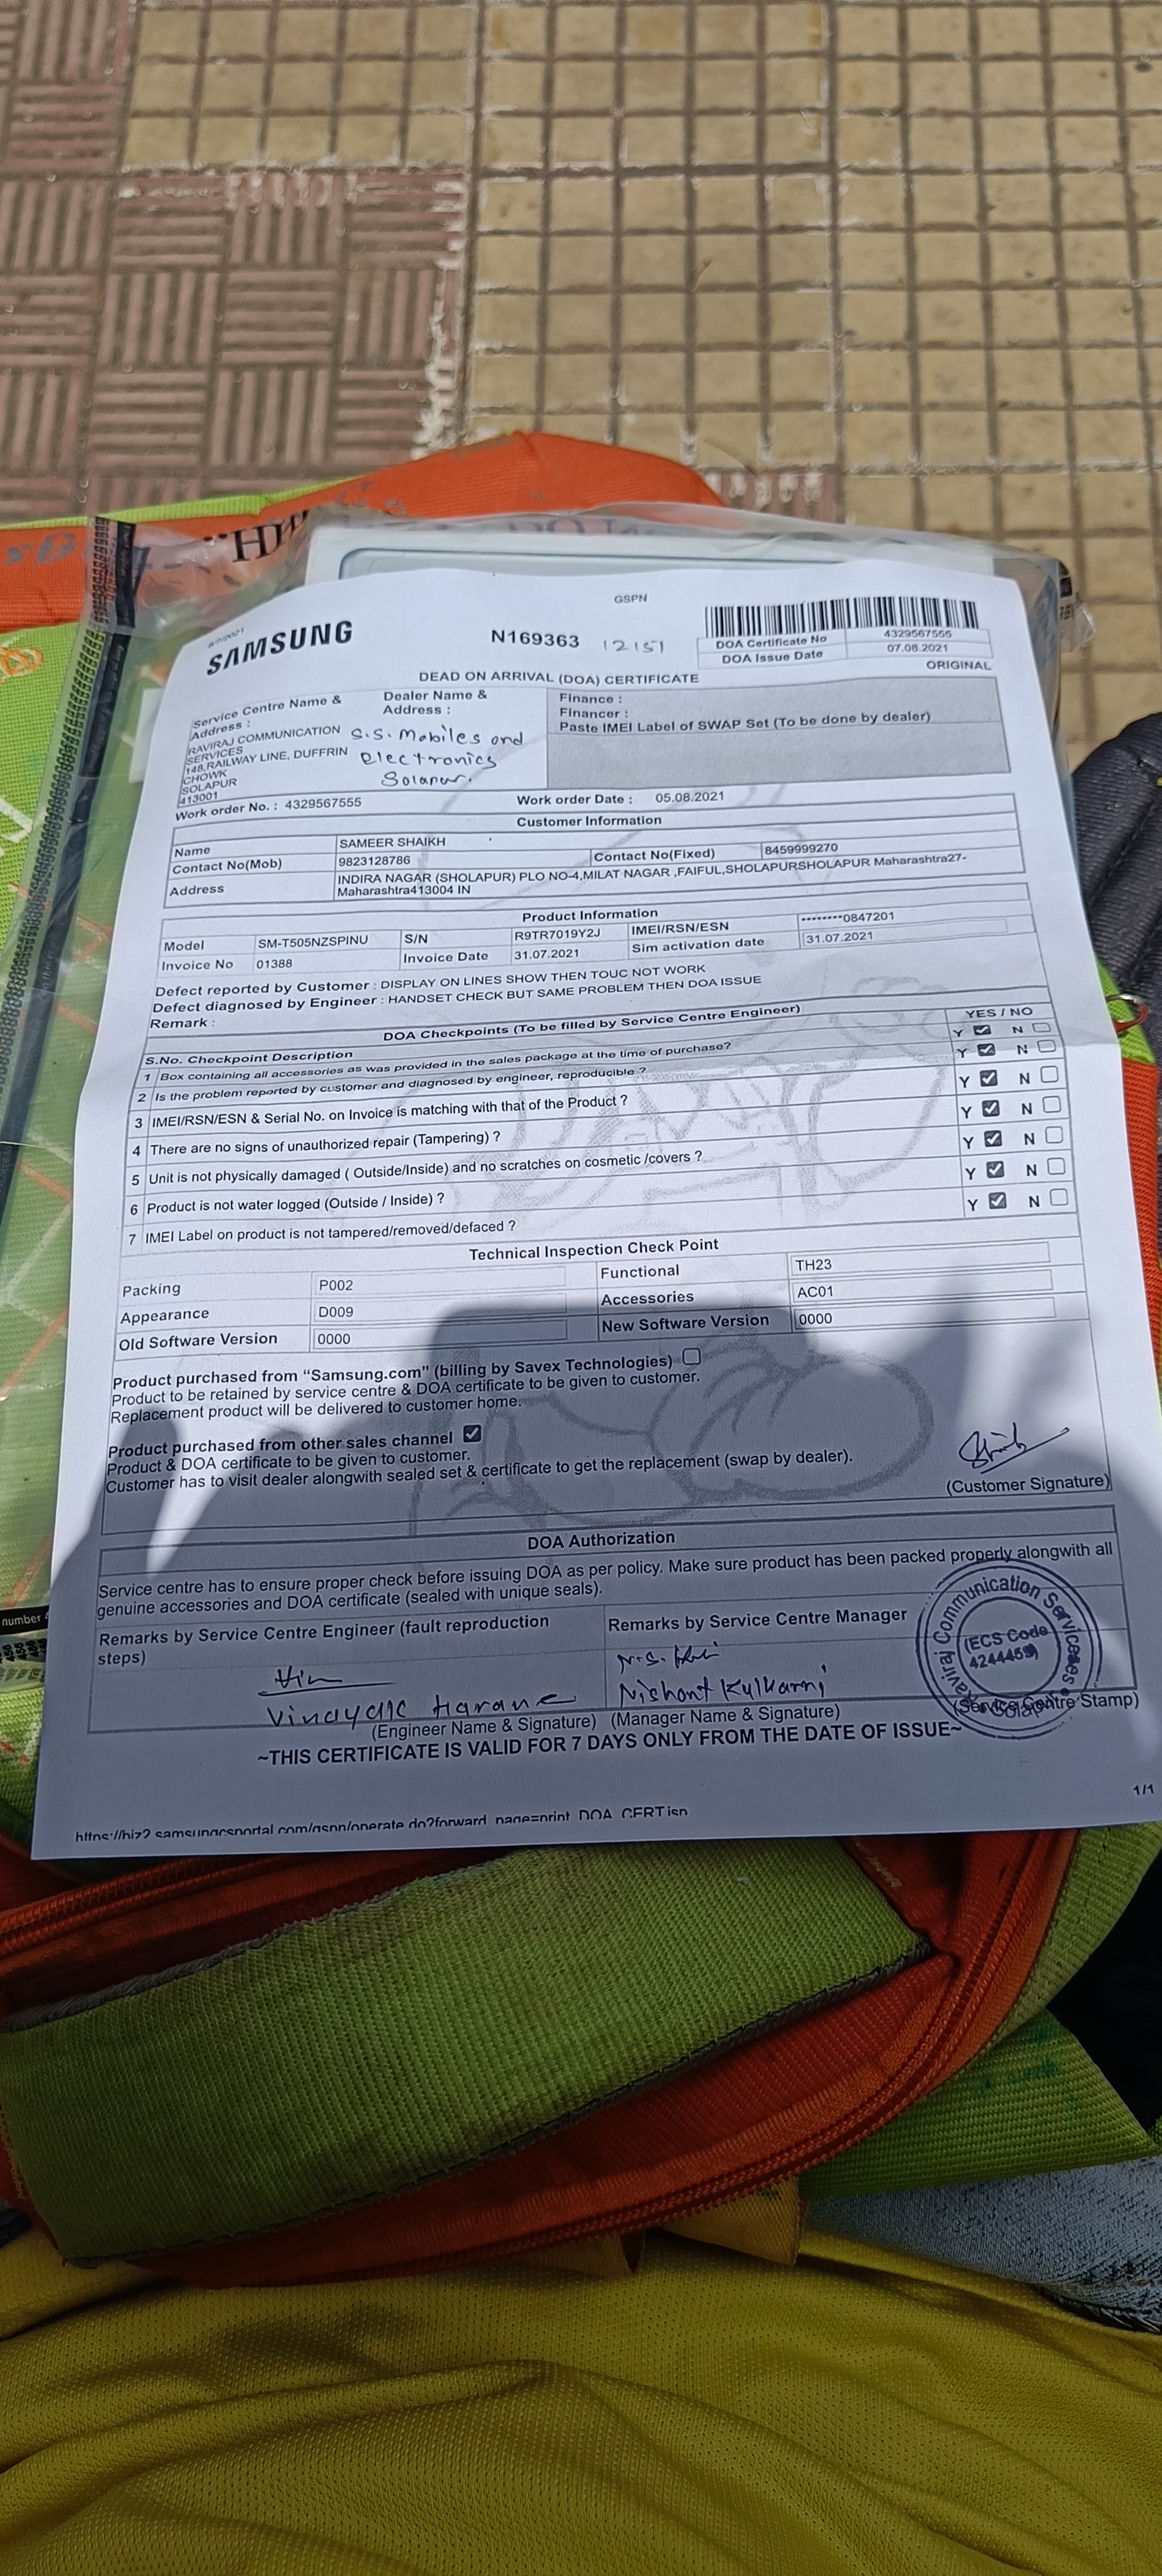 GSPN
SAMSUNG
N169363 12151
DOA Certificate No 4329567555
DOA Issue Date 07.08.2021
ORIGINAL
DEAD ON ARRIVAL (DOA) CERTIFICATE
Service Centre Name &
Address :
RAVIRAJ COMMUNICATION
SERVICES
148,RAILWAY LINE, DUFFRIN
CHOWK
SOLAPUR
413001
Dealer Name &
Address :
S.S. Mobiles and
Electronics
Solapur.
Finance :
Financer :
Paste IMEI Label of SWAP Set (To be done by dealer)
Work order No. : 4329567555 Work order Date : 05.08.2021
Customer Information
Name SAMEER SHAIKH
Contact No(Mob) 9823128786 Contact No(Fixed) 8459999270
Address INDIRA NAGAR (SHOLAPUR) PLO NO-4,MILAT NAGAR ,FAIFUL,SHOLAPURSHOLAPUR Maharashtra27-
Maharashtra413004 IN
Product Information
Model SM-T505NZSPINU S/N R9TR7019Y2J IMEI/RSN/ESN ********0847201
Invoice No 01388 Invoice Date 31.07.2021 Sim activation date 31.07.2021
Defect reported by Customer : DISPLAY ON LINES SHOW THEN TOUC NOT WORK
Defect diagnosed by Engineer : HANDSET CHECK BUT SAME PROBLEM THEN DOA ISSUE
Remark :
DOA Checkpoints (To be filled by Service Centre Engineer)
S.No. Checkpoint Description YES / NO
1 Box containing all accessories as was provided in the sales package at the time of purchase? Y N
2 Is the problem reported by customer and diagnosed by engineer, reproducible ? Y N
3 IMEI/RSN/ESN & Serial No. on Invoice is matching with that of the Product ? Y N
4 There are no signs of unauthorized repair (Tampering) ? Y N
5 Unit is not physically damaged ( Outside/Inside) and no scratches on cosmetic /covers ? Y N
6 Product is not water logged (Outside / Inside) ? Y N
7 IMEI Label on product is not tampered/removed/defaced ? Y N
Technical Inspection Check Point
Packing P002 Functional TH23
Appearance D009 Accessories AC01
Old Software Version 0000 New Software Version 0000
Product purchased from "Samsung.com" (billing by Savex Technologies)
Product to be retained by service centre & DOA certificate to be given to customer.
Replacement product will be delivered to customer home.
Product purchased from other sales channel
Product & DOA certificate to be given to customer.
Customer has to visit dealer alongwith sealed set & certificate to get the replacement (swap by dealer).
(Customer Signature)
DOA Authorization
Service centre has to ensure proper check before issuing DOA as per policy. Make sure product has been packed properly alongwith all
genuine accessories and DOA certificate (sealed with unique seals).
Remarks by Service Centre Engineer (fault reproduction
steps)
Remarks by Service Centre Manager
Vinayak Harane
Nishant Kulkarni
(Engineer Name & Signature) (Manager Name & Signature) (Service Centre Stamp)
Raviraj Communication Services
(ECS Code
4244459)
~THIS CERTIFICATE IS VALID FOR 7 DAYS ONLY FROM THE DATE OF ISSUE~
1/1
https://biz2.samsungcsportal.com/gspn/operate.do?forward_page=print_DOA_CERT.jsp
number